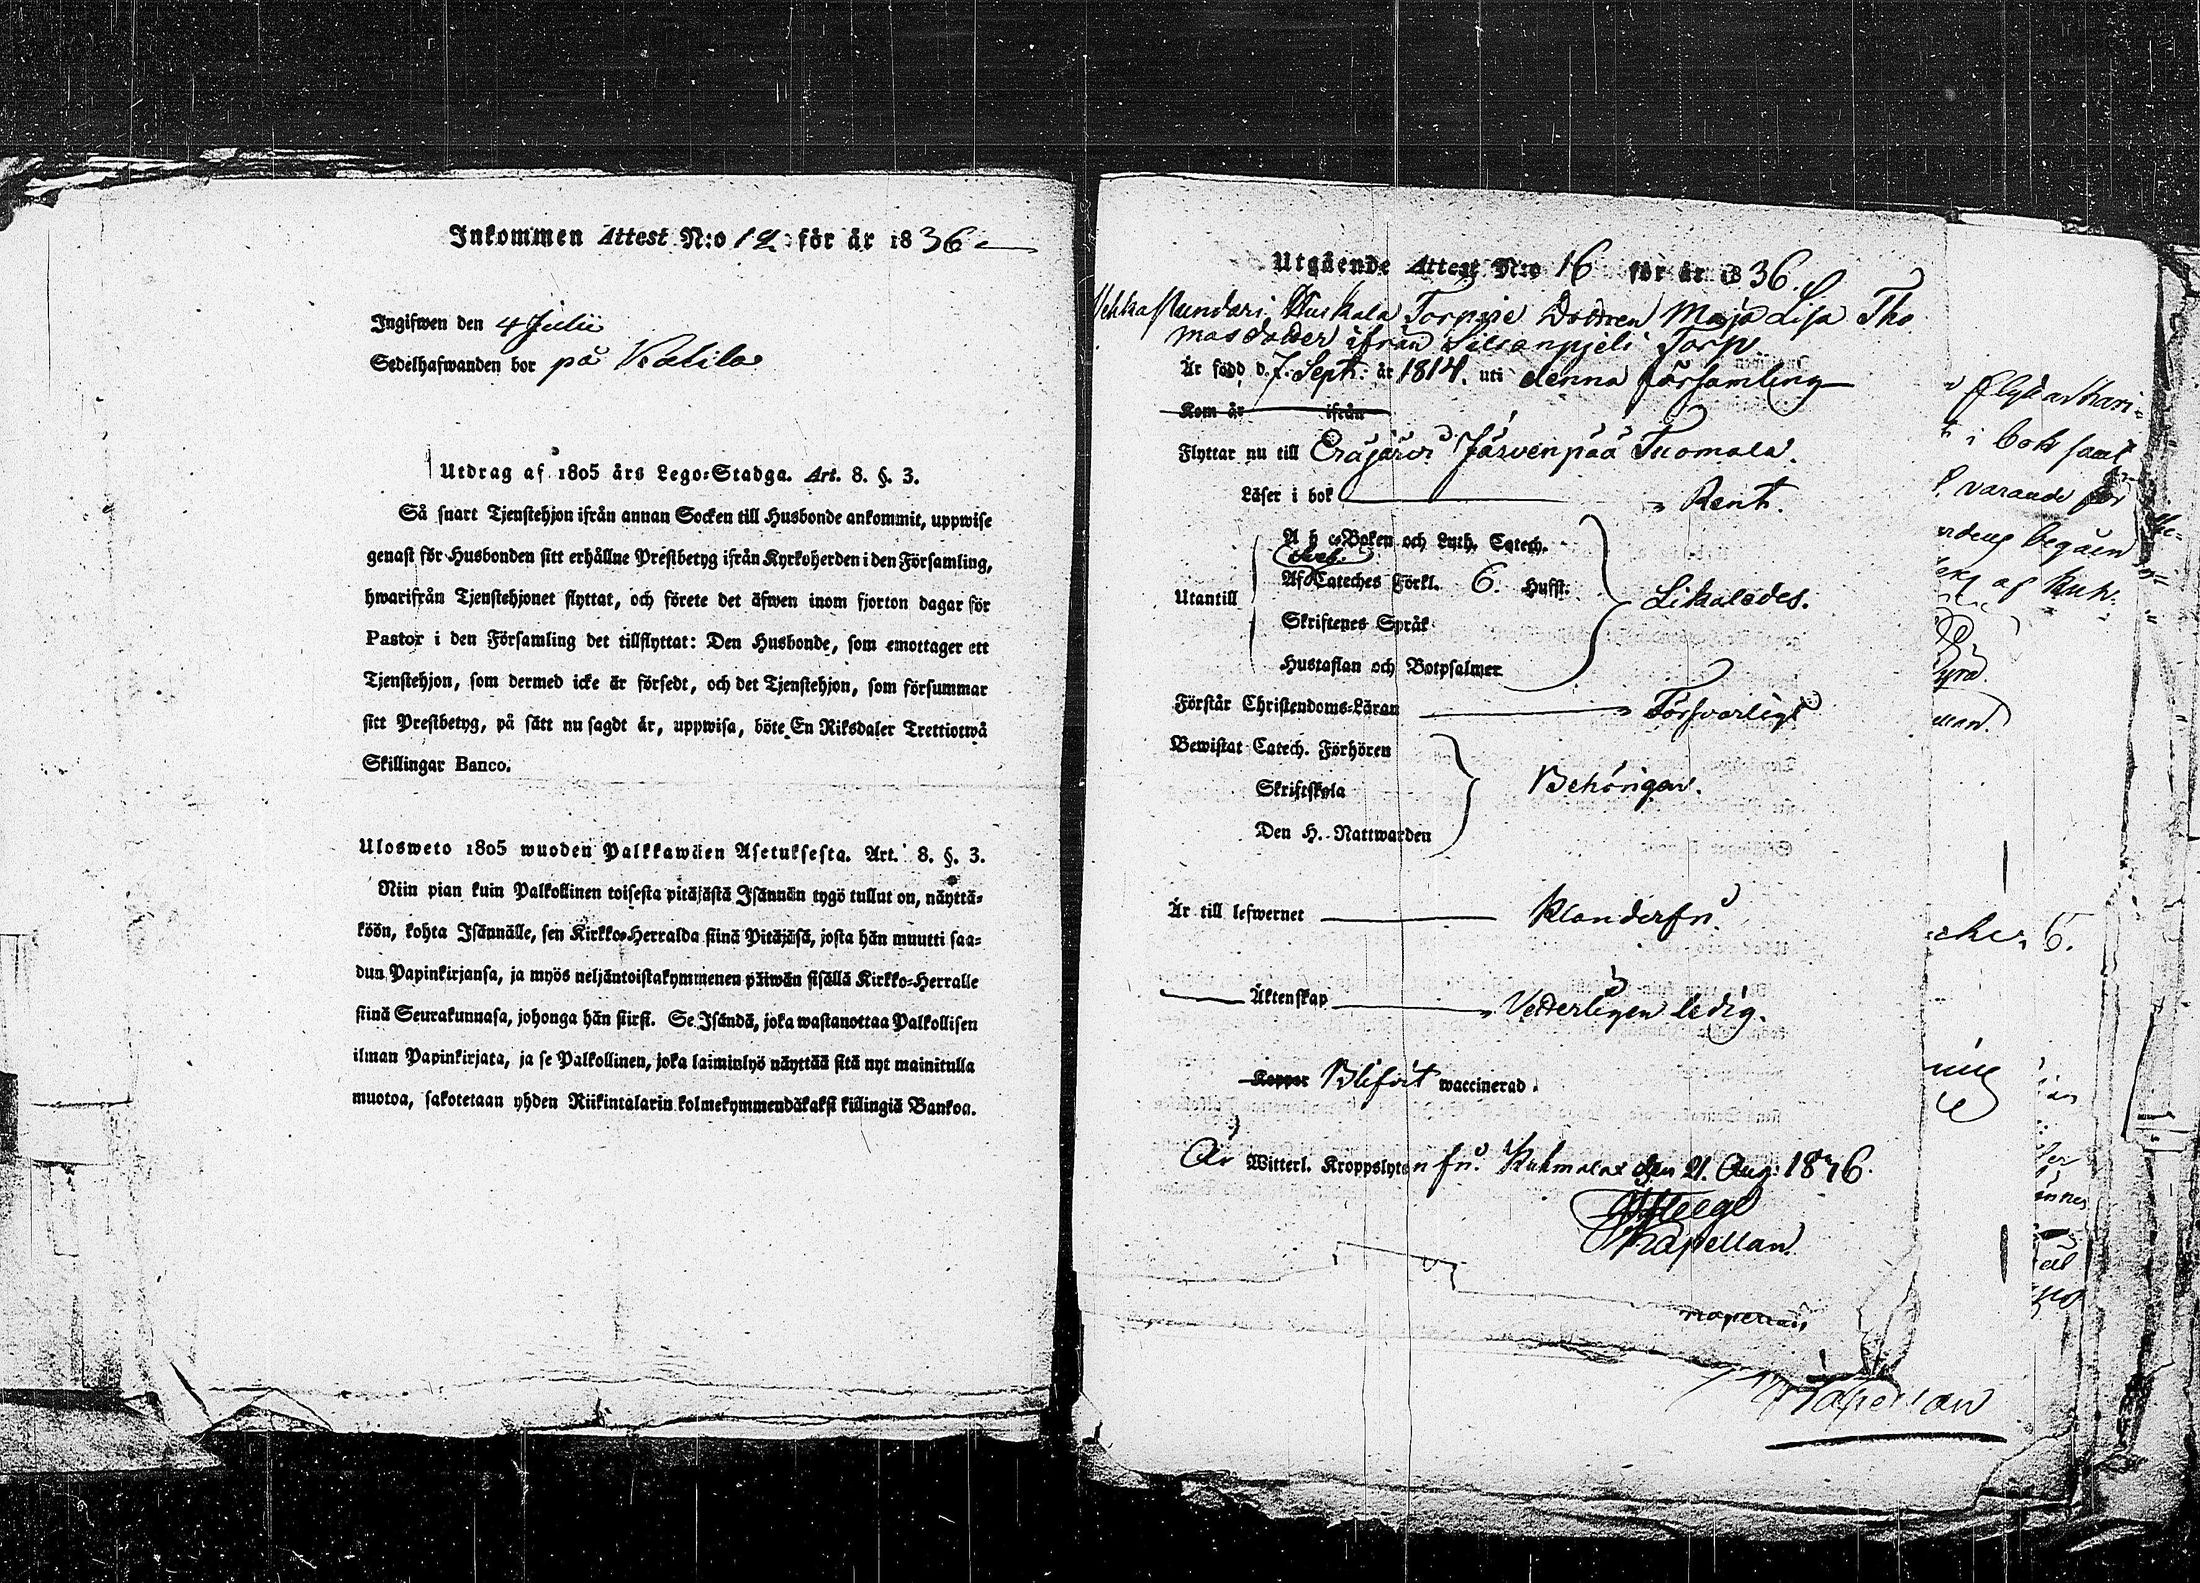 Inkommen Attest N:o 12 för år 1836
Ingifwen den 4 Julii
Sedelhafwanden bor på Kalila
Utdrag af 1805 års Lego-Stadga. Art. 8. §. 3.
Så snart Tjenstehjon ifrån annan Socken till Husbonde ankommit, uppwise
genast för Husbonden sitt erhållne Prestbetyg ifrån Kyrkoherden i den Församling,
hwarifrån Tjenstehjonet flyttat, och förete det äfwen inom fjorton dagar för
Pastor i den Församling det tillflyttat: Den Husbonde, som emottager ett
Tjenstehjon, som dermed icke är försedt, och det Tjenstehjon, som försummar
sitt Prestbetyg, på sätt nu sagdt är, uppwisa, böte En Riksdaler Trettiotwå
Skillingar Banco.
Ulosweto 1805 wuoden Palkkawäen Asetuksesta. Art. 8. §. 3.
Niin pian kuin Palkollinen toisesta pitäjästä Isännän tygö tullut on, näyttä-
köön, kohta Isännälle, sen Kirkko-Herralda siinä Pitäjäsä, josta hän muutti saa-
dun Papinkirjansa, ja myös neljäntoistakymmenen päiwän sisällä Kirkko-Herralle
siinä Seurakunnasa, johonga hän siirsi. Se Isändä, joka wastanottaa Palkollisen
ilman Papinkirjata, ja se Palkollinen, joka laiminlyö näyttää sitä nyt mainitulla
muotoa, sakotetaan yhden Riikintalarin kolmekymmendäkaksi killingiä Bankoa.
Utgående Attest N:o 16 för år 1836.
Torpare Dottren Maja Lisa Tho
masdotter ifrån Torp
Är född d. 7. Sept. år 1814. uti denna församling
Kom år ifrån
Flyttar nu till Eräjärvi Järvenpää Tuomala.
Läser i bok Rent.
A b c-Boken och Luth. Catech.
Sveb.
Utantill Af Cateches Förkl. 6. Hufst. Likaledes.
Skriftenes Språk
Hustaflan och Botpsalmer
Förstår Christendoms-Läran Försvarligt
Bewistat Catech. Förhören
Skriftskola Behörigen.
Den H. Nattwarden
Är till lefwernet Klanderfri.
Äktenskap Vetterligen ledig.
Koppor Blifvit waccinerad.
Är Witterl. Kroppslyten fri. Kuhmalax den 21. Aug. 1836.
Kapellan.
Kapellan
i bok samt
varande för
begåen
af Kuh-
6.